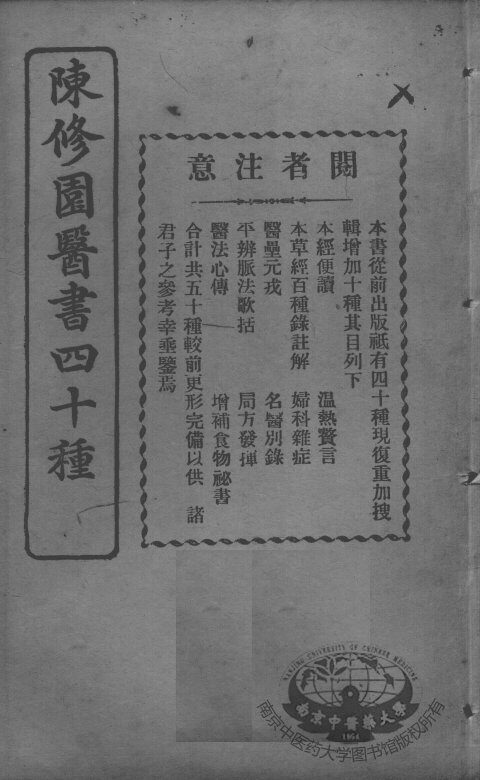 閱者注意
本書從前出版祗有四十種現復重加搜
輯增加十種其目列下
本經便讀 溫熱贅言
本草經百種錄註解 婦科雜症
醫壘元戎 名醫別錄
平辨脈法歌括 局方發揮
醫法心傳 增補食物祕書
合計共五十種較前更形完備以供 諸
君子之參考幸垂鑒焉
陳修園醫書四十種
NANJING UNIVERSITY OF CHINESE MEDICINE
南京中醫藥大學
1954
南京中医药大学图书馆版权所有